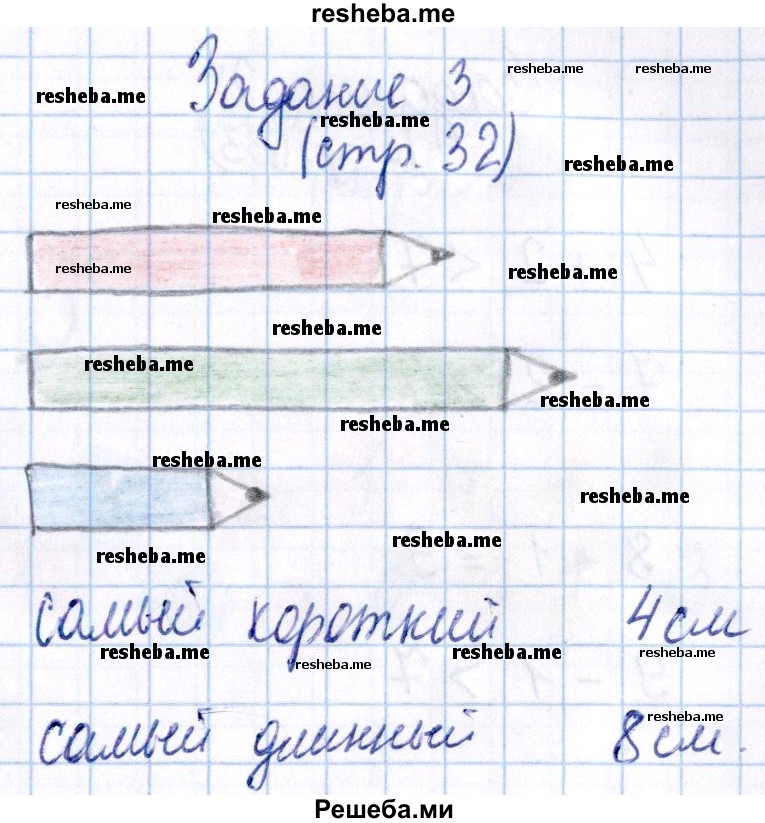 resheba.me
Задание 3
resheba.me resheba.me
resheba.me
resheba.me
(стр. 32)
resheba.me
resheba.me
resheba.me
resheba.me
resheba.me
resheba.me
resheba.me
resheba.me
resheba.me
resheba.me
resheba.me
resheba.me
resheba.me
самый короткий 4 см
resheba.me resheba.me resheba.me resheba.me
resheba.me
самый длинный 8 см.
Решеба.ми